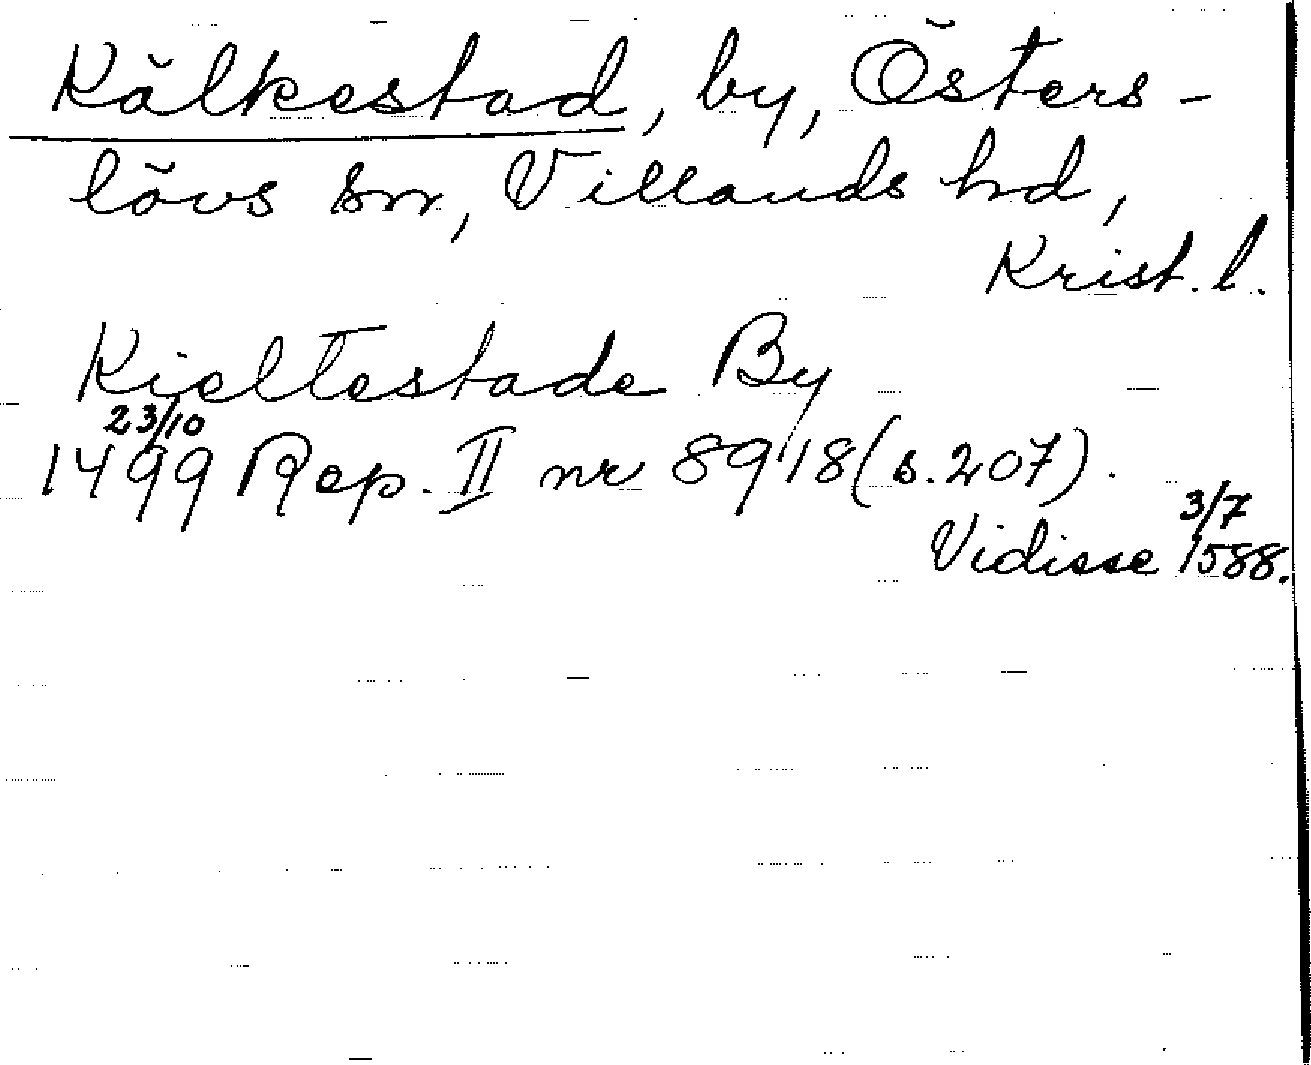 Kälkestad, by, Östers-
lövs sn, Villands hd,
Krist. l.
Kieltestade By
23/10
1499 Rep. II nr 8918 (s. 207).
3/7
Vidisse 1588.